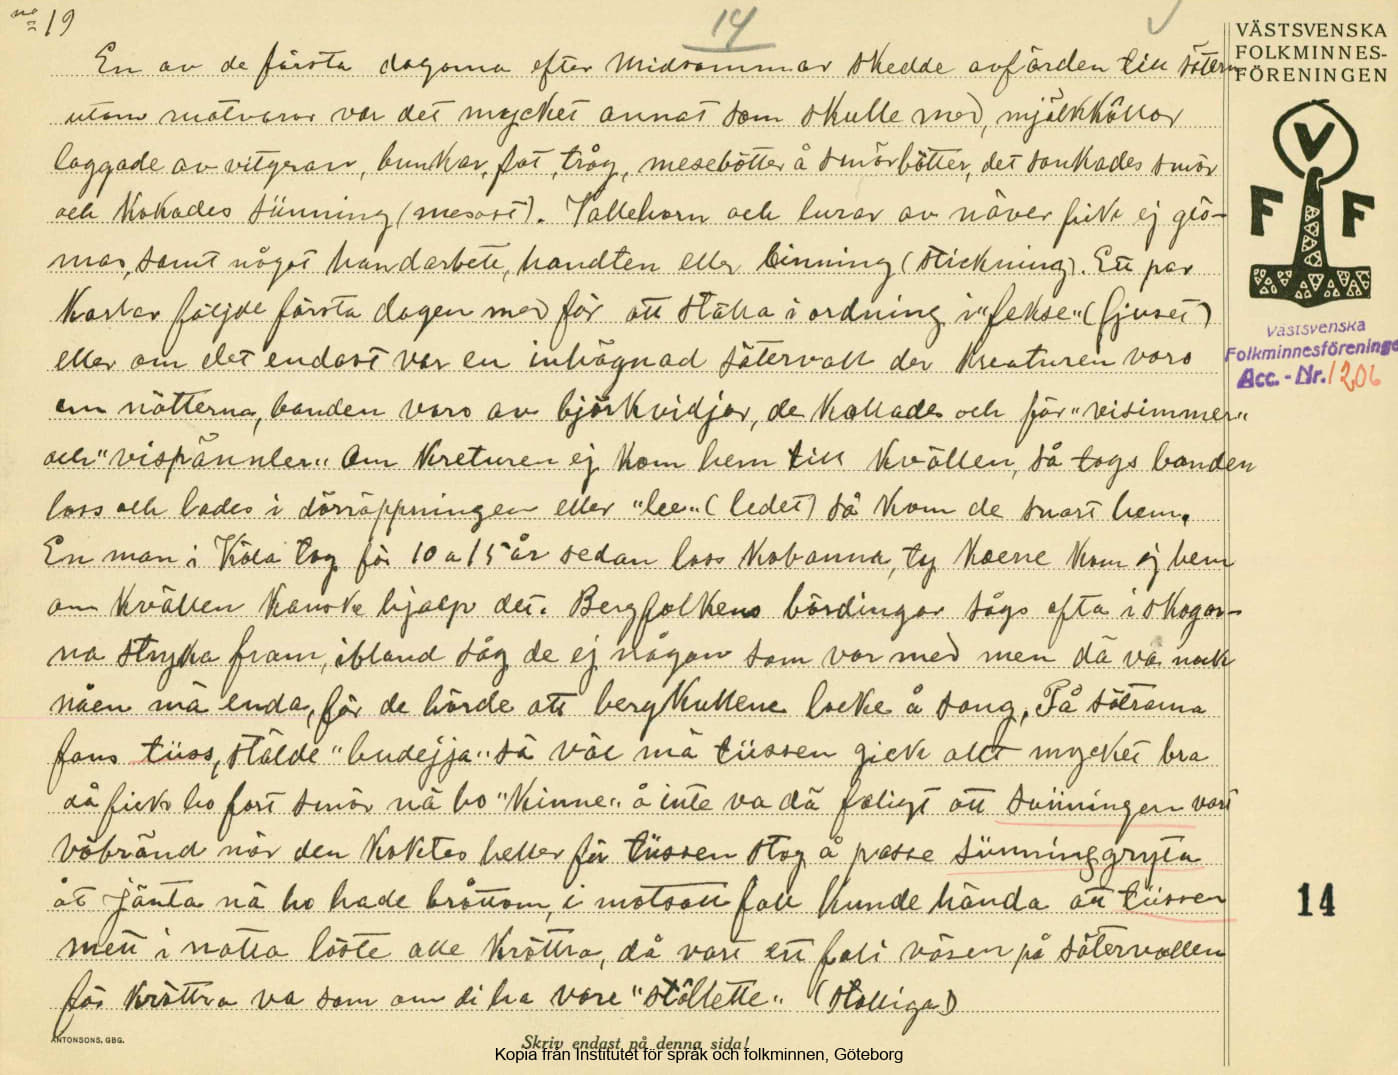 no 19
14
VÄSTSVENSKA
FOLKMINNES-
FÖRENINGEN
En av de första dagarna efter Midsommar skedde avfärden till sätern
utom matvaror var det mycket annat som skulle med, mjölkkållor
laggade av vitgran, bunkar, fat, tråg, mesebötter å smörbötter, det sankades smör
och kokades sünning (mesost). Vallehorn och lurar av näver fick ej glö-
mas, samt något handarbete, handten eller binning (stickning). Ett par
karlar följde första dagen med för att ställa i ordning i "fekse" (fjuset)
eller om det endast var en inhägnad sätervall der kreaturen voro
om nätterna, banden voro av björkvidjor, de kallades och för "visimmer"
och "vispännler" Om kreturen ej kom hem till kvällen, så togs banden
loss och lades i dörröppningen eller "lee" (ledet) så kom de snart hem.
En man i Köla tog för 10 a 15 år sedan loss kobanna, ty koene kom ej hem
om kvällen kanske hjalp det. Bergfolkens bördingar sågs ofta i skogar-
na stryka fram, ibland såg de ej någon som var med men dä va nock
nåen mä enda, för de hörde att bergkullene locke å sang. På sätrarna
fans tüss, stälde "budejja" så väl mä tüssen gick allt mycket bra
då fick ho fort smör nä ho "kinne" å inte va dä faligt att sünningen vart
vöbränd när den koktes heller för tüssen stog å passe sünninggryta
åt jänta nä ho hade bråttom, i motsatt fall kunde hända att tüssen
mett i natta löste alle kröttra, då vart ett fali väsen på sätervallen
för kröttra va som om di ha vare "stöllette" (stolliga)
V
F F
Västsvenska
Folkminnesföreninge
Acc. - Nr. 1206
14
ANTONSONS, GBG.
Skriv endast på denna sida!
Kopia från Institutet för språk och folkminnen, Göteborg